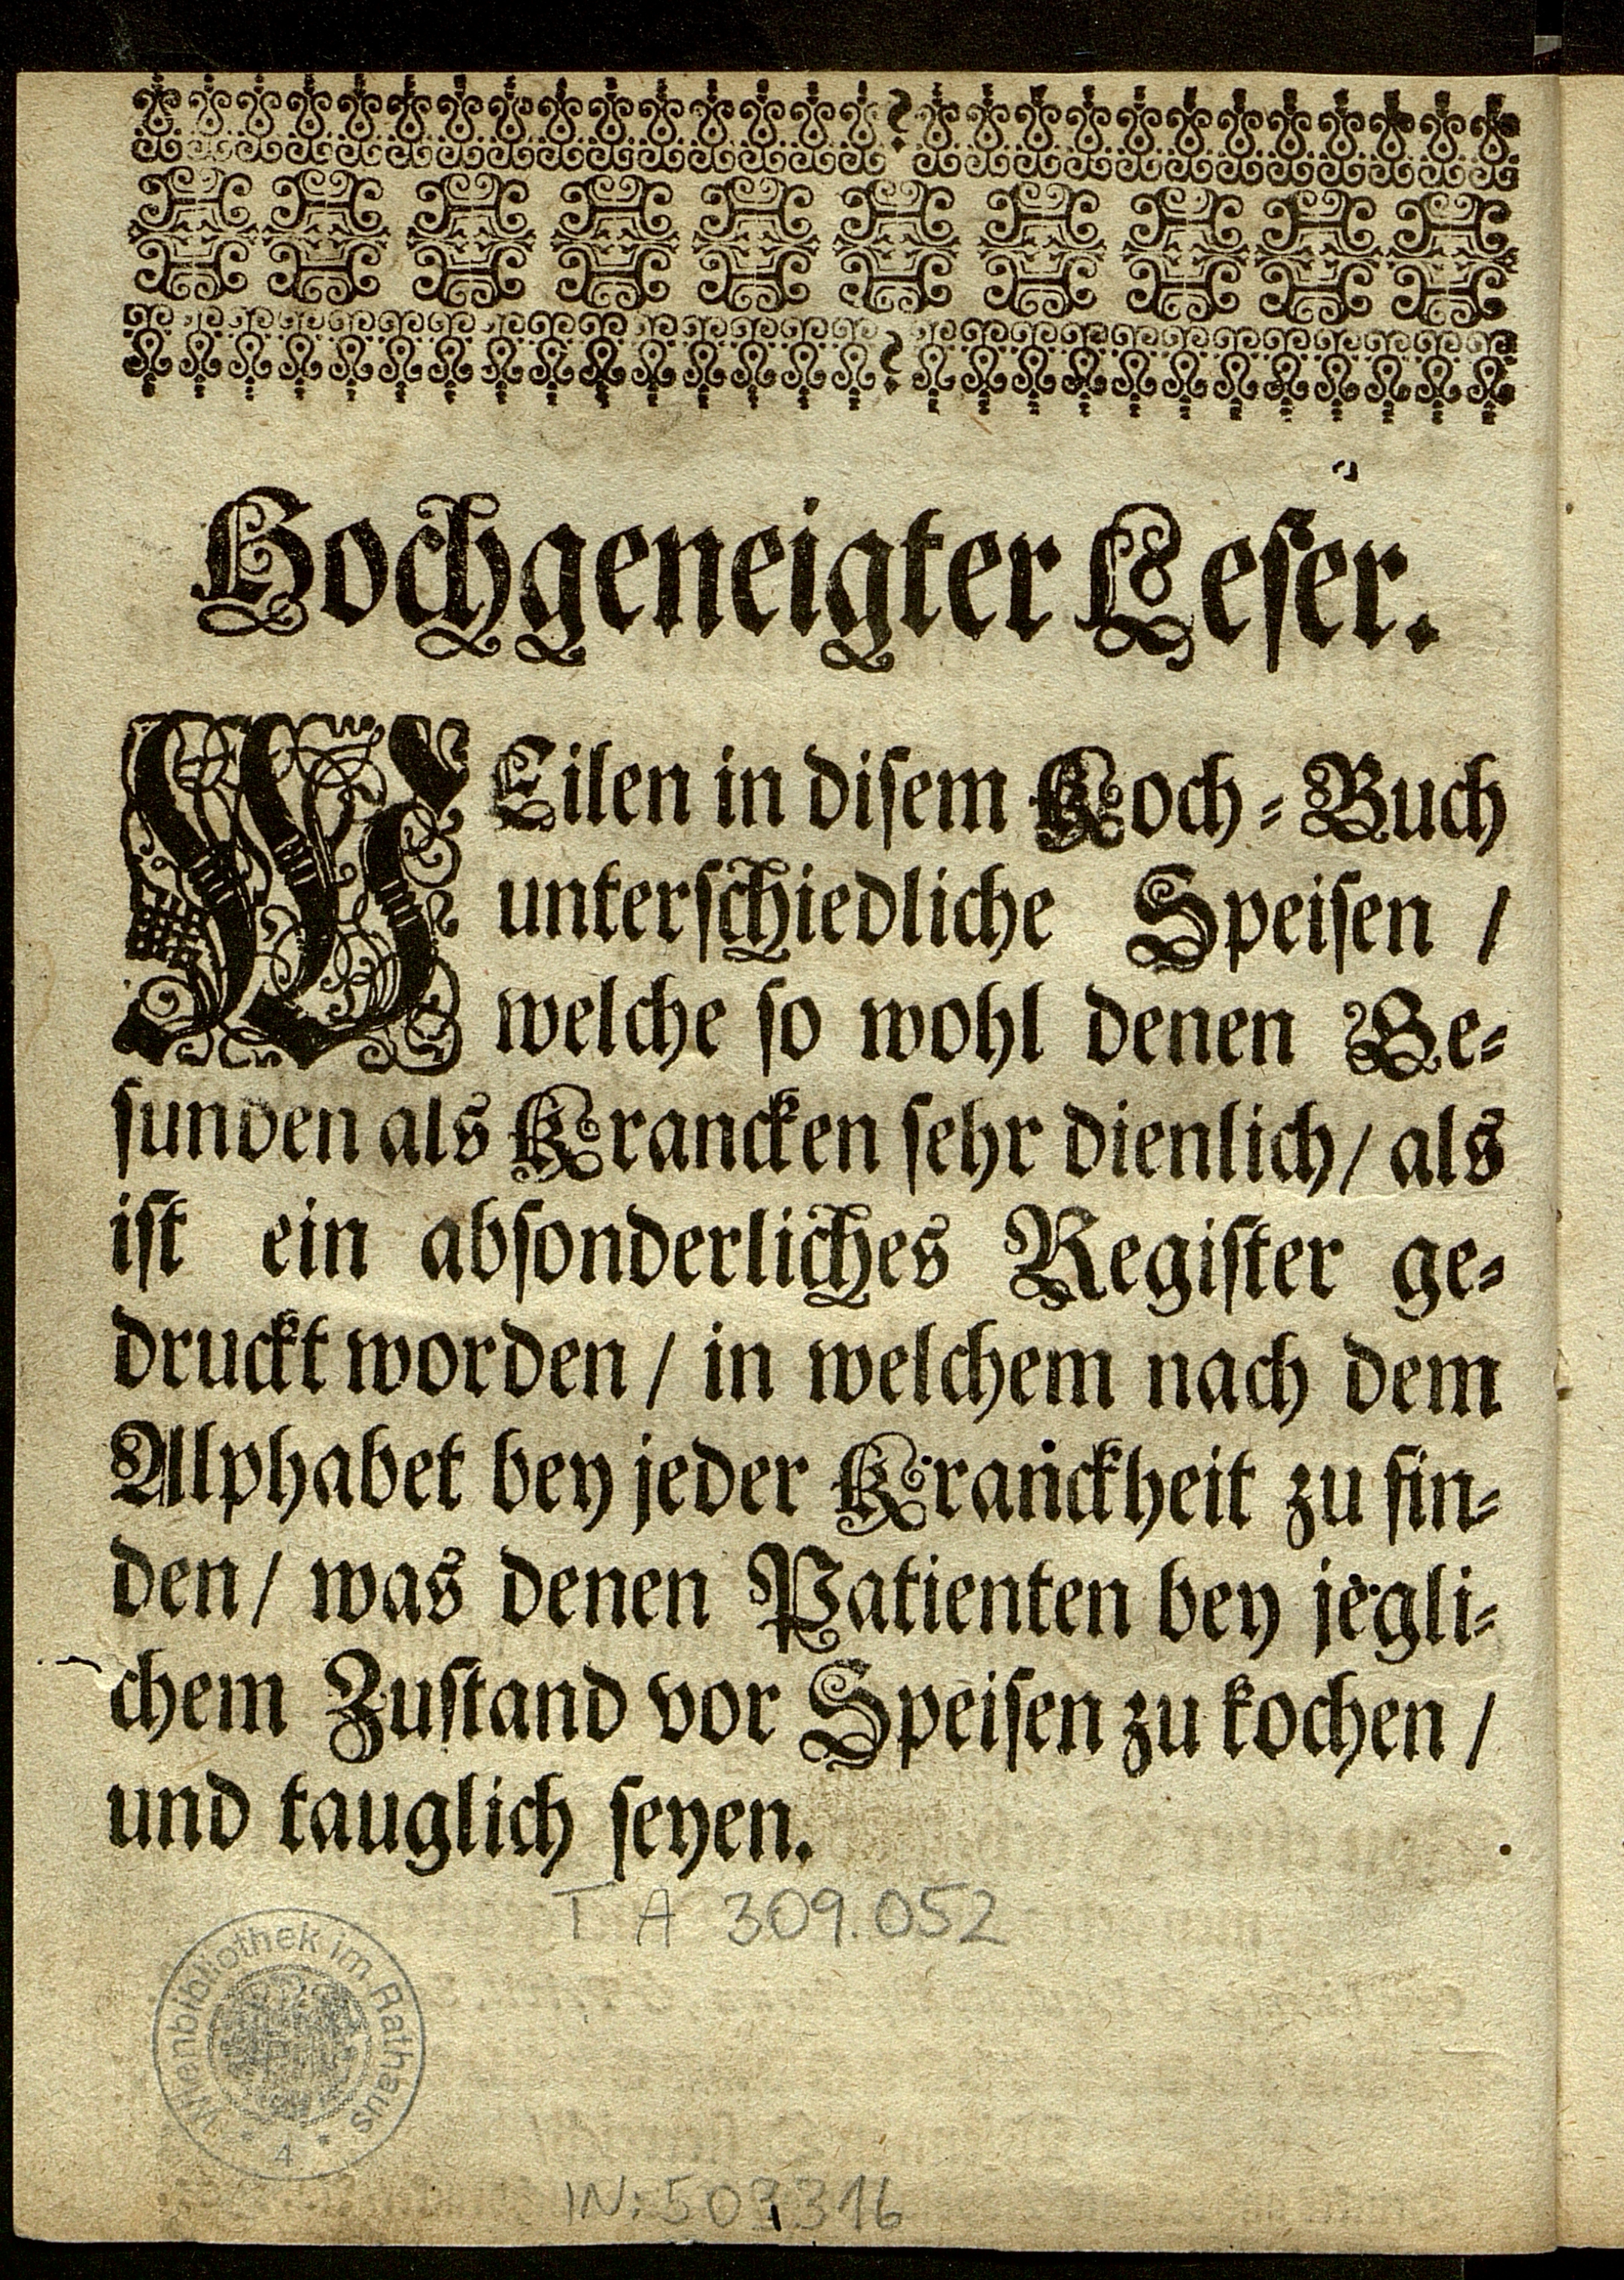 Hochgeneigter Leser.
WEilen in disem Koch-Buch
unterschiedliche Speisen /
welche so wohl denen Ge-
sunden als Krancken sehr dienlich / als
ist ein absonderliches Register ge-
druckt worden / in welchem nach dem
Alphabet bey jeder Kranckheit zu fin-
den / was denen Patienten bey jegli-
chem Zustand vor Speisen zu kochen /
und tauglich seyen.
T A 309.052
Wienbibliothek im Rathaus
* 4 *
IN: 503316